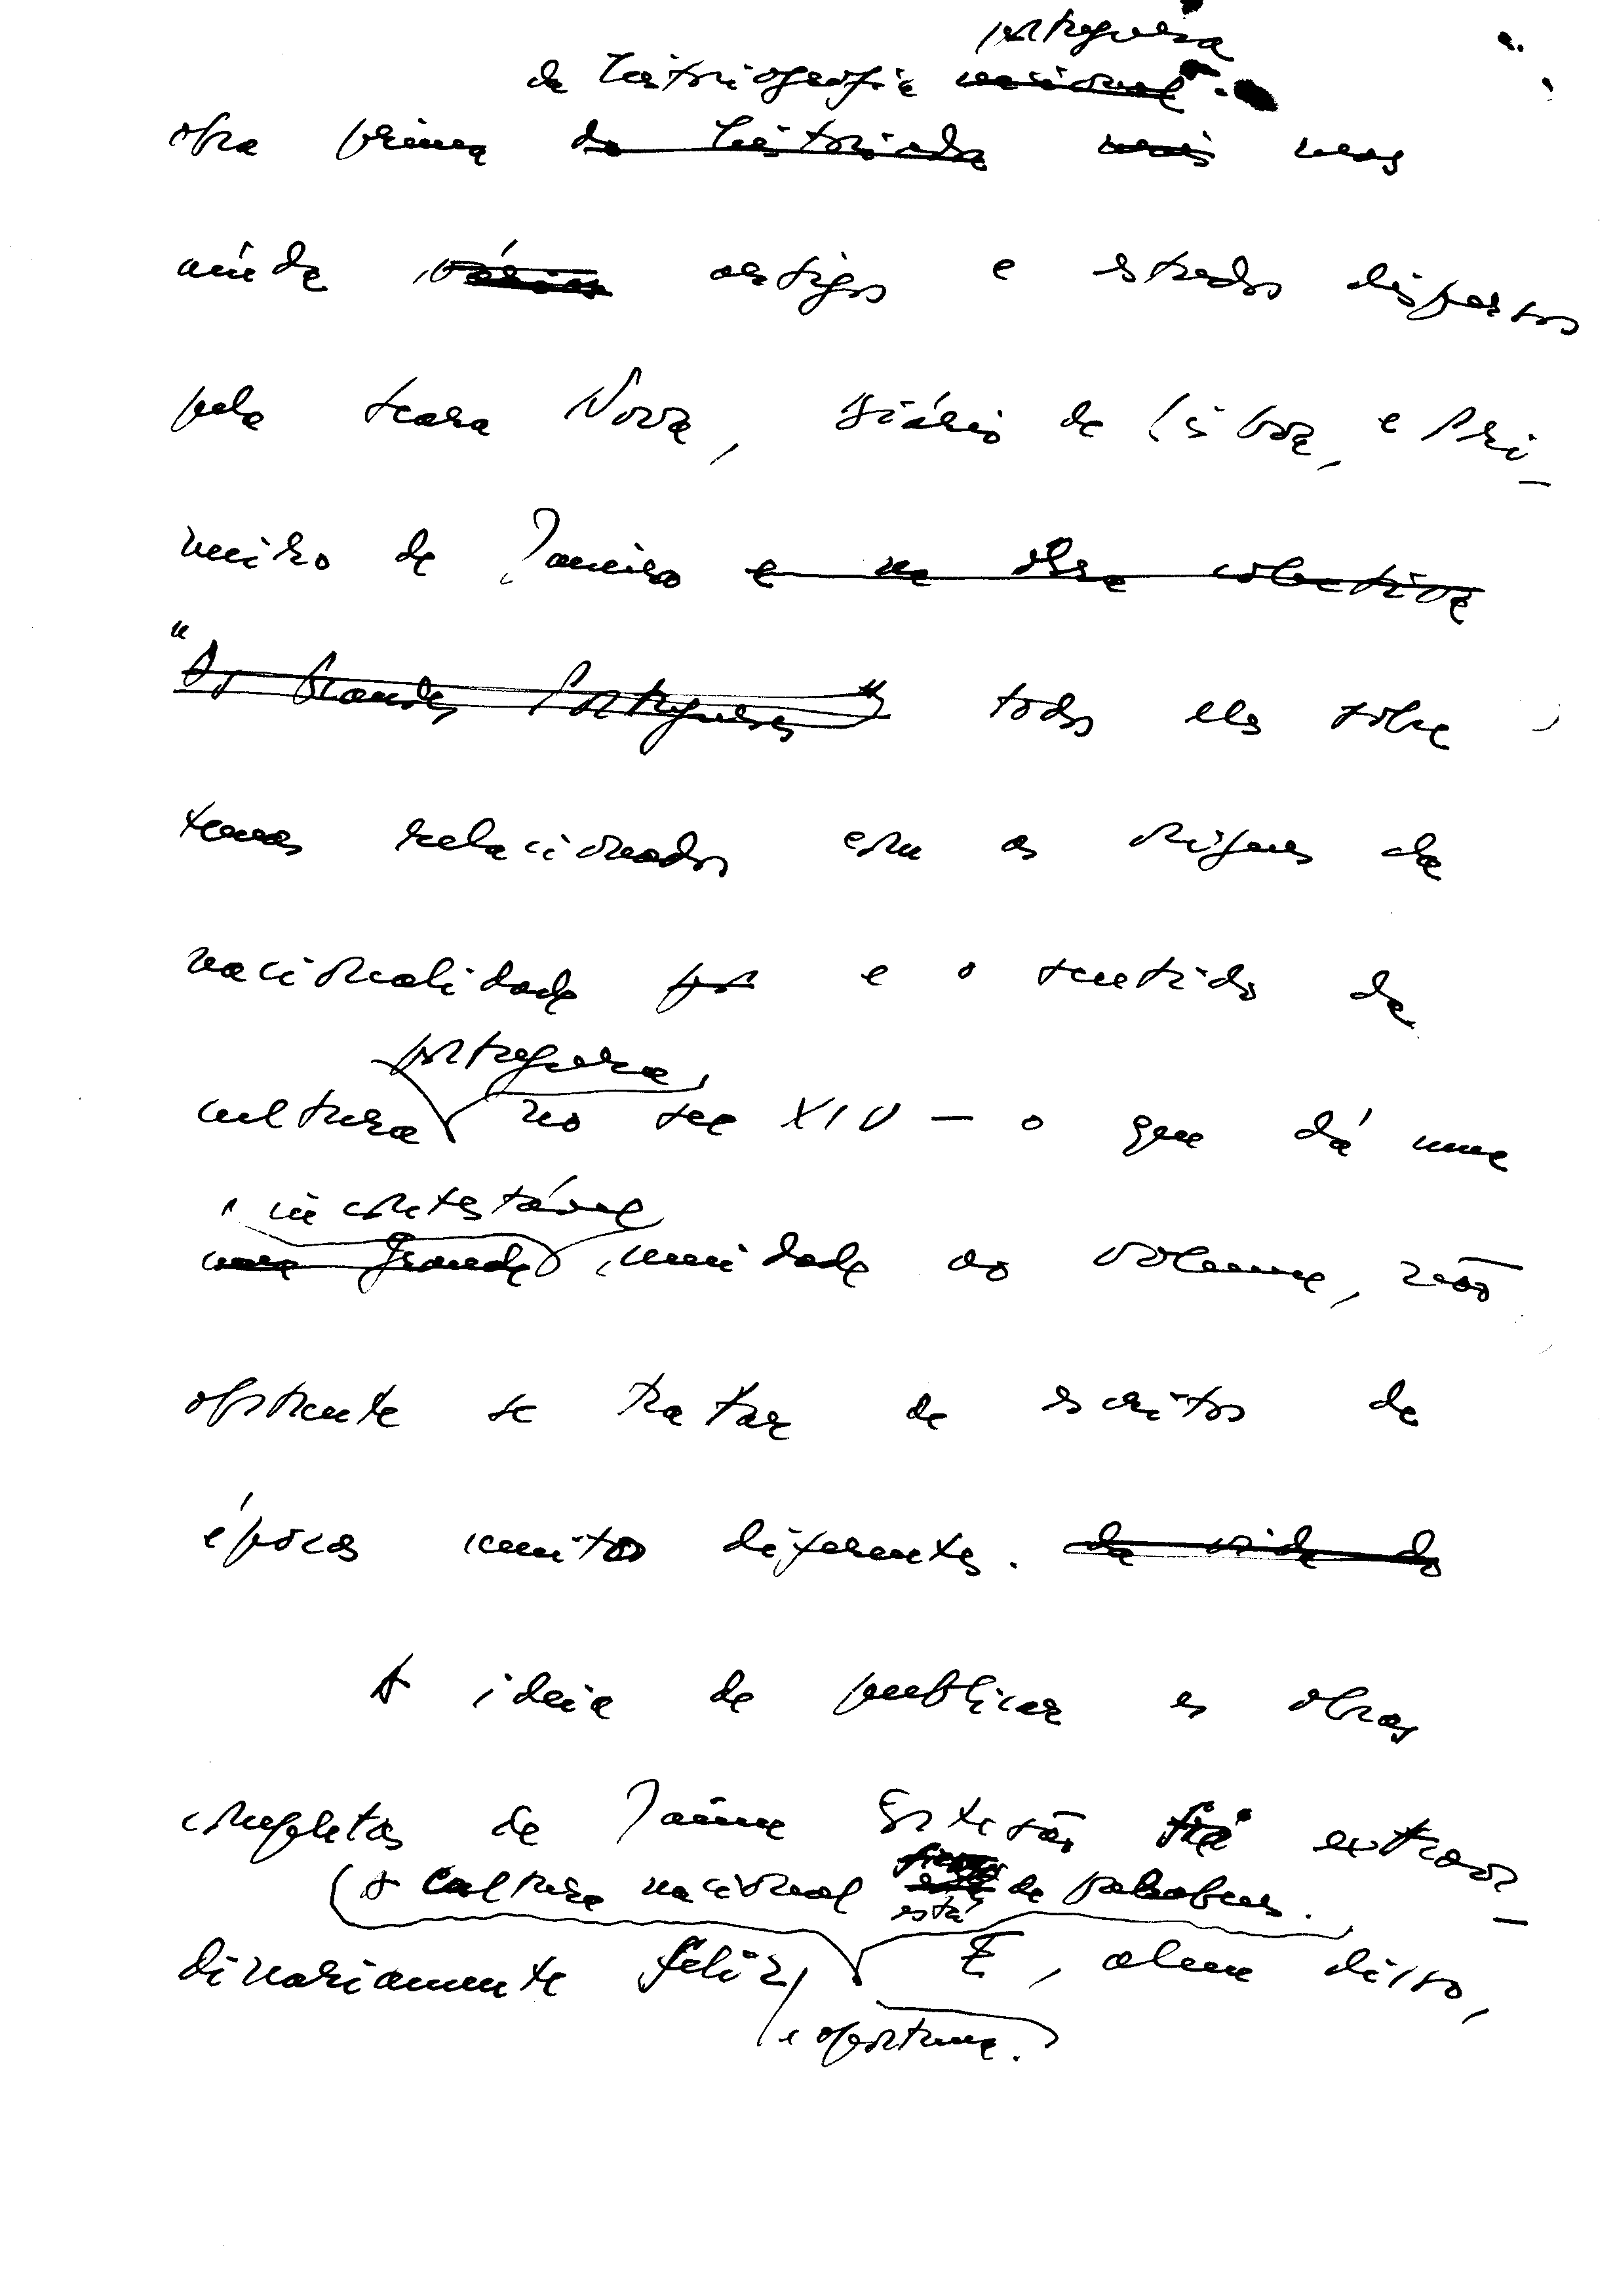 portuguesa
da historiografia nacional.
obra prima da história da mais mas
ainda vários artigos e estudos dispersos
pela Seara Nova, Diário de Lisboa, e Pri-
meiro de Janeiro e na obra colectiva
"Os Grandes Portugueses" todos eles sobre
temas relacionados com as origens da
nacionalidade por e o sentido da
portuguesa,
cultura no sec XIV — o que dá uma
incontestável
uma grande unidade ao volume, não
obstante se tratar de escritos de
épocas muito diferentes. da vida do
A ideia de publicar as obras
completas de Jaime Cortesão foi extraor-
(A cultura nacional está de parabéns.
está
dinariamente feliz, E, alem disso,
e oportuna.